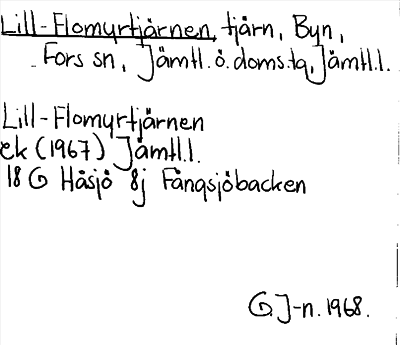 Lill-Flomyrtjärnen, tjärn, Byn,
Fors sn, Jämtl. ö. doms.tg, Jämtl.l.
Lill-Flomyrtjärnen
ek (1967) Jämtl.l.
18 G Håsjö 8j Fångsjöbacken
G. J-n. 1968.